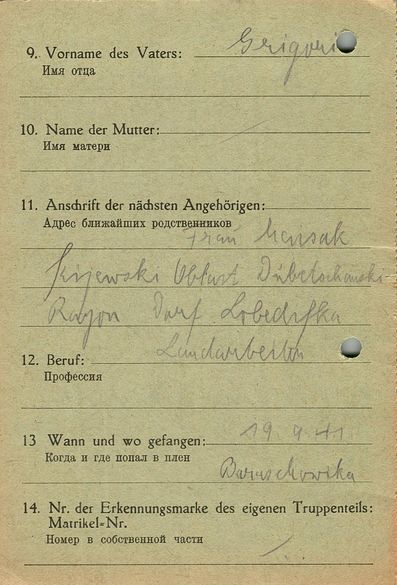 9. Vorname des Vaters: Grigori
Имя отца
10. Name der Mutter:
Имя матери
11. Anschrift der nächsten Angehörigen:
Адрес ближайших родственников
Frau
Kijewski Oblast
Rayon Dorf
12. Beruf: Landarbeiter
Профессия
13 Wann und wo gefangen: 19.9.41.
Когда и где попал в плен
14. Nr. der Erkennungsmarke des eigenen Truppenteils:
Matrikel=Nr.
Номер в собственной части